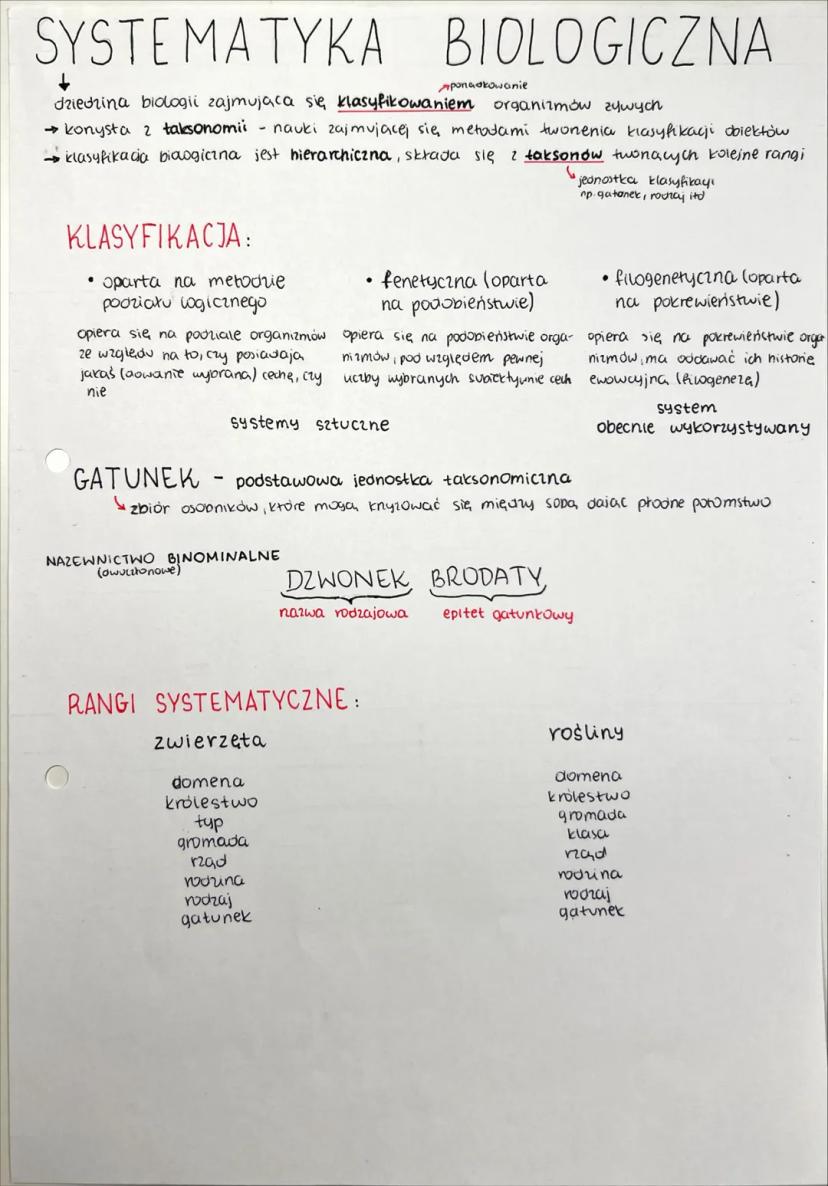 SYSTEMATYKA BIOLOGICZNA
porządkowanie
dziedzina biologii zajmująca się klasyfikowaniem organizmów żywych
→ korzysta z taksonomii - nauki zajmującej się metodami tworzenia klasyfikacji obiektów
→ klasyfikacja biologiczna jest hierarchiczna, składa się z taksonów tworzących kolejne rangi
jednostka klasyfikacji
np. gatunek, rodzaj itd
KLASYFIKACJA:
• oparta na metodzie
podziału logicznego
opiera się na podziale organizmów
ze względu na to, czy posiadają
jakąś (dowolnie wybraną) cechę, czy
nie
• fenetyczna (oparta
na podobieństwie)
opiera się na podobieństwie orga-
nizmów, pod względem pewnej
liczby wybranych subiektywnie cech
systemy sztuczne
• filogenetyczna (oparta
na pokrewieństwie)
opiera się na pokrewieństwie orga-
nizmów, ma oddawać ich historię
ewolucyjną (filogenezą)
system
obecnie wykorzystywany
GATUNEK - podstawowa jednostka taksonomiczna
zbiór osobników, które mogą krzyżować się między sobą dając płodne potomstwo
NAZEWNICTWO BINOMINALNE
(dwuczłonowe)
DZWONEK BRODATY
nazwa rodzajowa epitet gatunkowy
RANGI SYSTEMATYCZNE:
zwierzęta
domena
królestwo
typ
gromada
rząd
rodzina
rodzaj
gatunek
rośliny
domena
królestwo
gromada
klasa
rząd
rodzina
rodzaj
gatunek